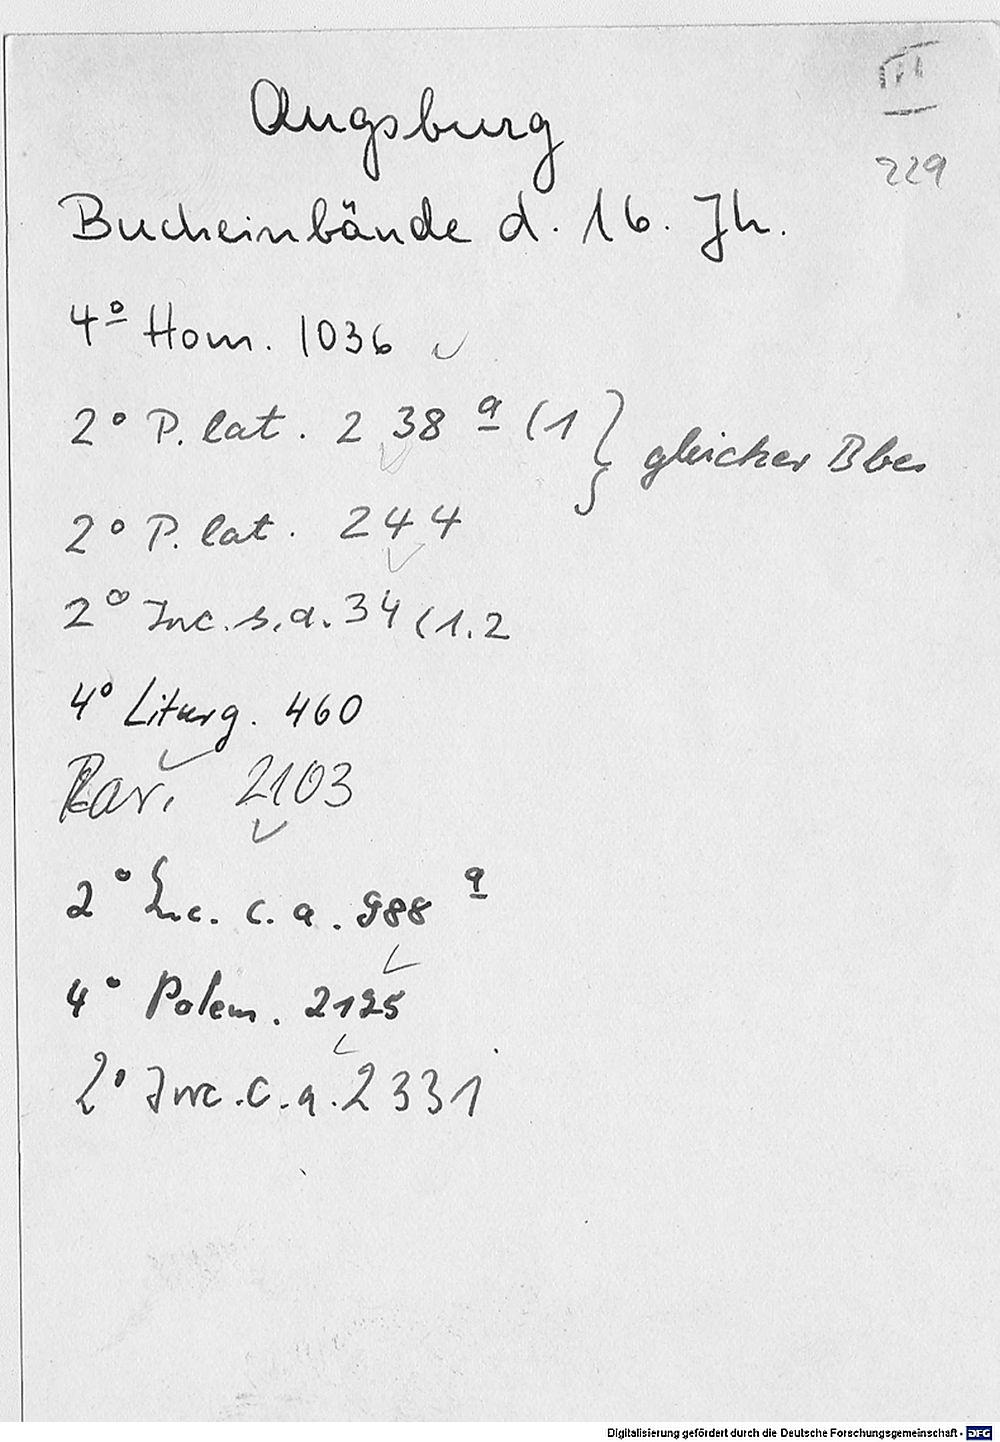 Augsburg
229
Bucheinbände d. 16. Jh.
4º Hom. 1036
2° P. lat. 238 ª (1
gleicher Bbes
2° P. lat. 244
2° Inc. s. a. 34 (1.2
4° Liturg. 460
Rar. 2103
2° Inc. c. a. 988 ª
4° Polem. 2125
2° Inc. c. a. 2331
Digitalisierung gefördert durch die Deutsche Forschungsgemeinschaft - DFG